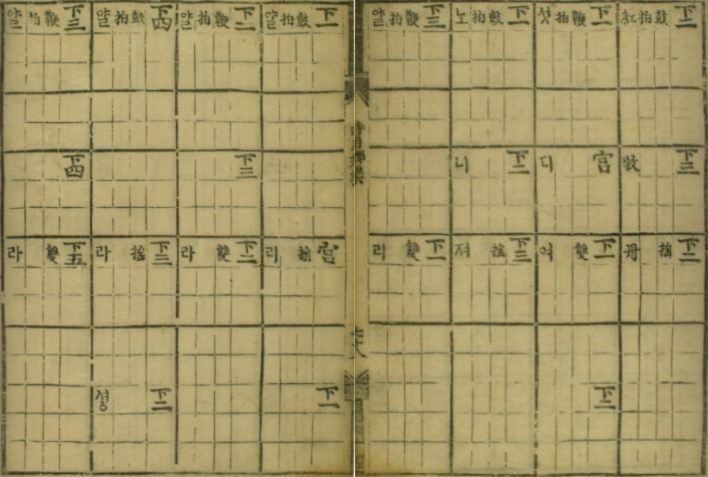 下一 下三 下二
鼓 搖
拍
紅 牧 丹
下一 宮 下一 下二
鞭 雙
拍
섯 디 여
下二 下二 下三
鼓 搖
拍
노 니 져
下三 下一
鞭 雙
拍
얄 리
下一 宮 下一
鼓 搖
拍
얄 리
下一 下三 下二
鞭 雙
拍
얄 라
下四 下三 下二
鼓 搖
拍
얄 라 셩
下三 下四 下五
鞭 雙
拍
얄 라